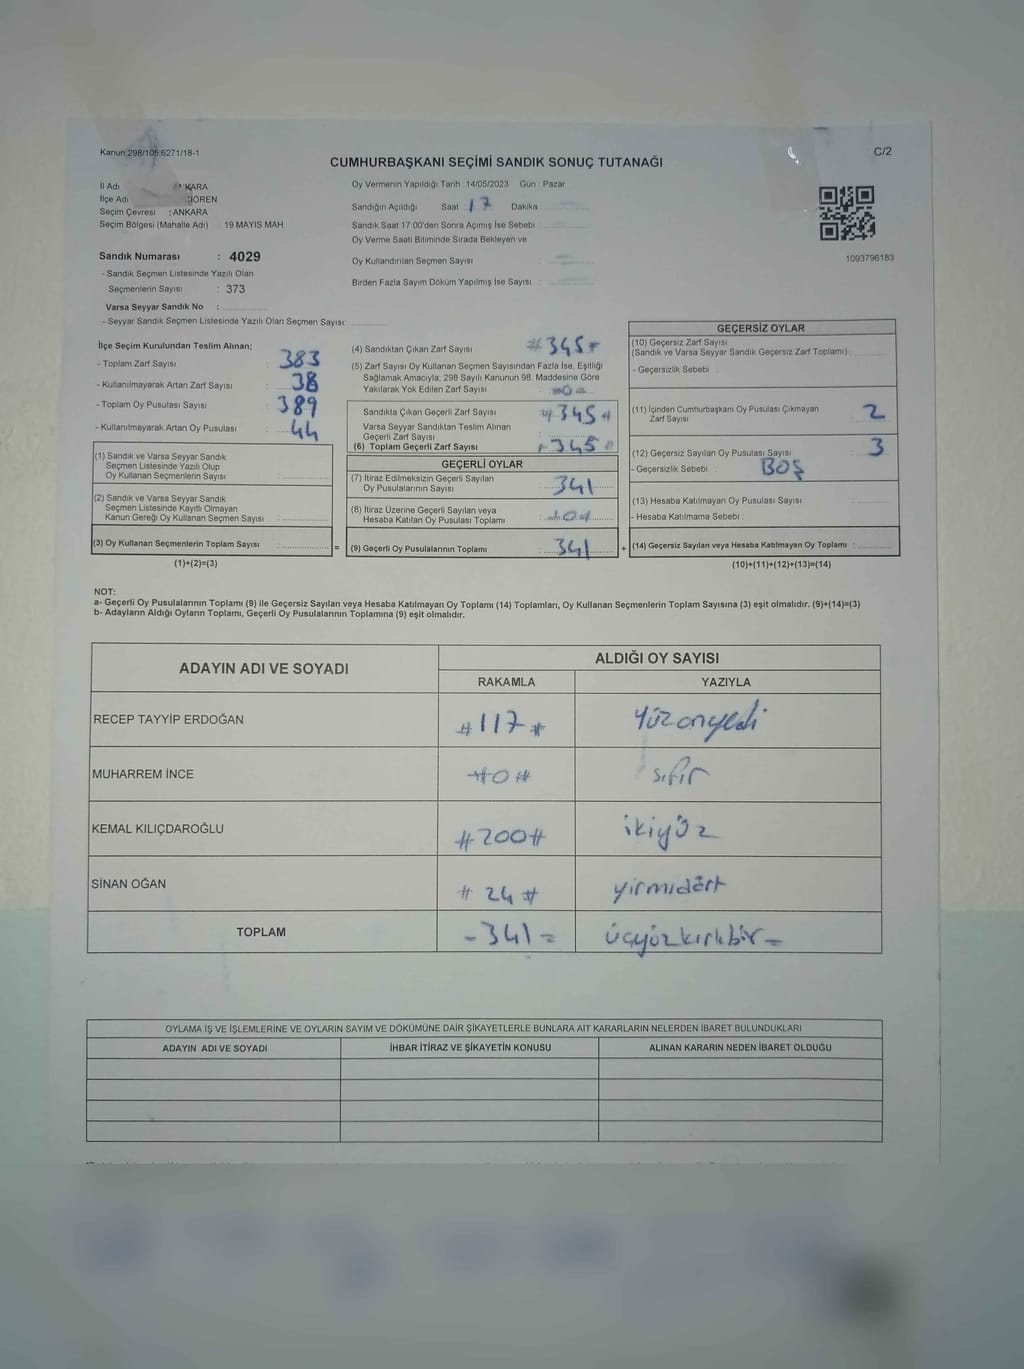 Kanun:298/105;6271/18-1
C/2
CUMHURBAŞKANI SEÇİMİ SANDIK SONUÇ TUTANAĞI
İl Adı KARA
İlçe Adı ÖREN
Seçim Çevresi : ANKARA
Seçim Bölgesi (Mahalle Adı) 19 MAYIS MAH
Sandık Numarası : 4029
- Sandık Seçmen Listesinde Yazılı Olan
Seçmenlerin Sayısı : 373
Varsa Seyyar Sandık No :
- Seyyar Sandık Seçmen Listesinde Yazılı Olan Seçmen Sayısı:
Oy Vermenin Yapıldığı Tarih :14/05/2023 Gün : Pazar
Sandığın Açıldığı Saat 17 Dakika
Sandık Saat 17.00'den Sonra Açımış İse Sebebi :
Oy Verme Saati Bitiminde Sırada Bekleyen ve
Oy Kullandırılan Seçmen Sayısı :
Birden Fazla Sayım Döküm Yapılmış İse Sayısı :
1093796183
İlçe Seçim Kurulundan Teslim Alınan;
- Toplam Zarf Sayısı : 383
- Kullanılmayarak Artan Zarf Sayısı : 38
- Toplam Oy Pusulası Sayısı : 389
- Kullanılmayarak Artan Oy Pusulası : 44
(1) Sandık ve Varsa Seyyar Sandık
Seçmen Listesinde Yazılı Olup
Oy Kullanan Seçmenlerin Sayısı :
(2) Sandık ve Varsa Seyyar Sandık
Seçmen Listesinde Kayıtlı Olmayan
Kanun Gereği Oy Kullanan Seçmen Sayısı :
(3) Oy Kullanan Seçmenlerin Toplam Sayısı :
(1)+(2)=(3)
(4) Sandıktan Çıkan Zarf Sayısı # 345 #
(5) Zarf Sayısı Oy Kullanan Seçmen Sayısından Fazla İse, Eşitliği
Sağlamak Amacıyla, 298 Sayılı Kanunun 98. Maddesine Göre
Yakılarak Yok Edilen Zarf Sayısı : =0=
Sandıkta Çıkan Geçerli Zarf Sayısı # 345 #
Varsa Seyyar Sandıktan Teslim Alınan
Geçerli Zarf Sayısı
(6) Toplam Geçerli Zarf Sayısı 345 #
GEÇERLİ OYLAR
(7) İtiraz Edilmeksizin Geçerli Sayılan
Oy Pusulalarının Sayısı : 341
(8) İtiraz Üzerine Geçerli Sayılan veya
Hesaba Katılan Oy Pusulası Toplamı : #0#
= (9) Geçerli Oy Pusulalarının Toplamı : 341 +
GEÇERSİZ OYLAR
(10) Geçersiz Zarf Sayısı
(Sandık ve Varsa Seyyar Sandık Geçersiz Zarf Toplamı) :
- Geçersizlik Sebebi :
(11) İçinden Cumhurbaşkanı Oy Pusulası Çıkmayan
Zarf Sayısı : 2
(12) Geçersiz Sayılan Oy Pusulası Sayısı : 3
- Geçersizlik Sebebi : BOŞ
(13) Hesaba Katılmayan Oy Pusulası Sayısı
- Hesaba Katılmama Sebebi :
(14) Geçersiz Sayılan veya Hesaba Katılmayan Oy Toplamı :
(10)+(11)+(12)+(13)=(14)
NOT:
a- Geçerli Oy Pusulalarının Toplamı (9) ile Geçersiz Sayılan veya Hesaba Katılmayan Oy Toplamı (14) Toplamları, Oy Kullanan Seçmenlerin Toplam Sayısına (3) eşit olmalıdır. (9)+(14)=(3)
b- Adayların Aldığı Oyların Toplamı, Geçerli Oy Pusulalarının Toplamına (9) eşit olmalıdır.
ADAYIN ADI VE SOYADI
ALDIĞI OY SAYISI
RAKAMLA YAZIYLA
RECEP TAYYİP ERDOĞAN #117# Yüzonyedi
MUHARREM İNCE #0# sıfır
KEMAL KILIÇDAROĞLU #200# ikiyüz
SİNAN OĞAN # 24 # yirmidört
TOPLAM -341= üçyüzkırkbir=
OYLAMA İŞ VE İŞLEMLERİNE VE OYLARIN SAYIM VE DÖKÜMÜNE DAİR ŞİKAYETLERLE BUNLARA AİT KARARLARIN NELERDEN İBARET BULUNDUKLARI
ADAYIN ADI VE SOYADI İHBAR İTİRAZ VE ŞİKAYETİN KONUSU ALINAN KARARIN NEDEN İBARET OLDUĞU